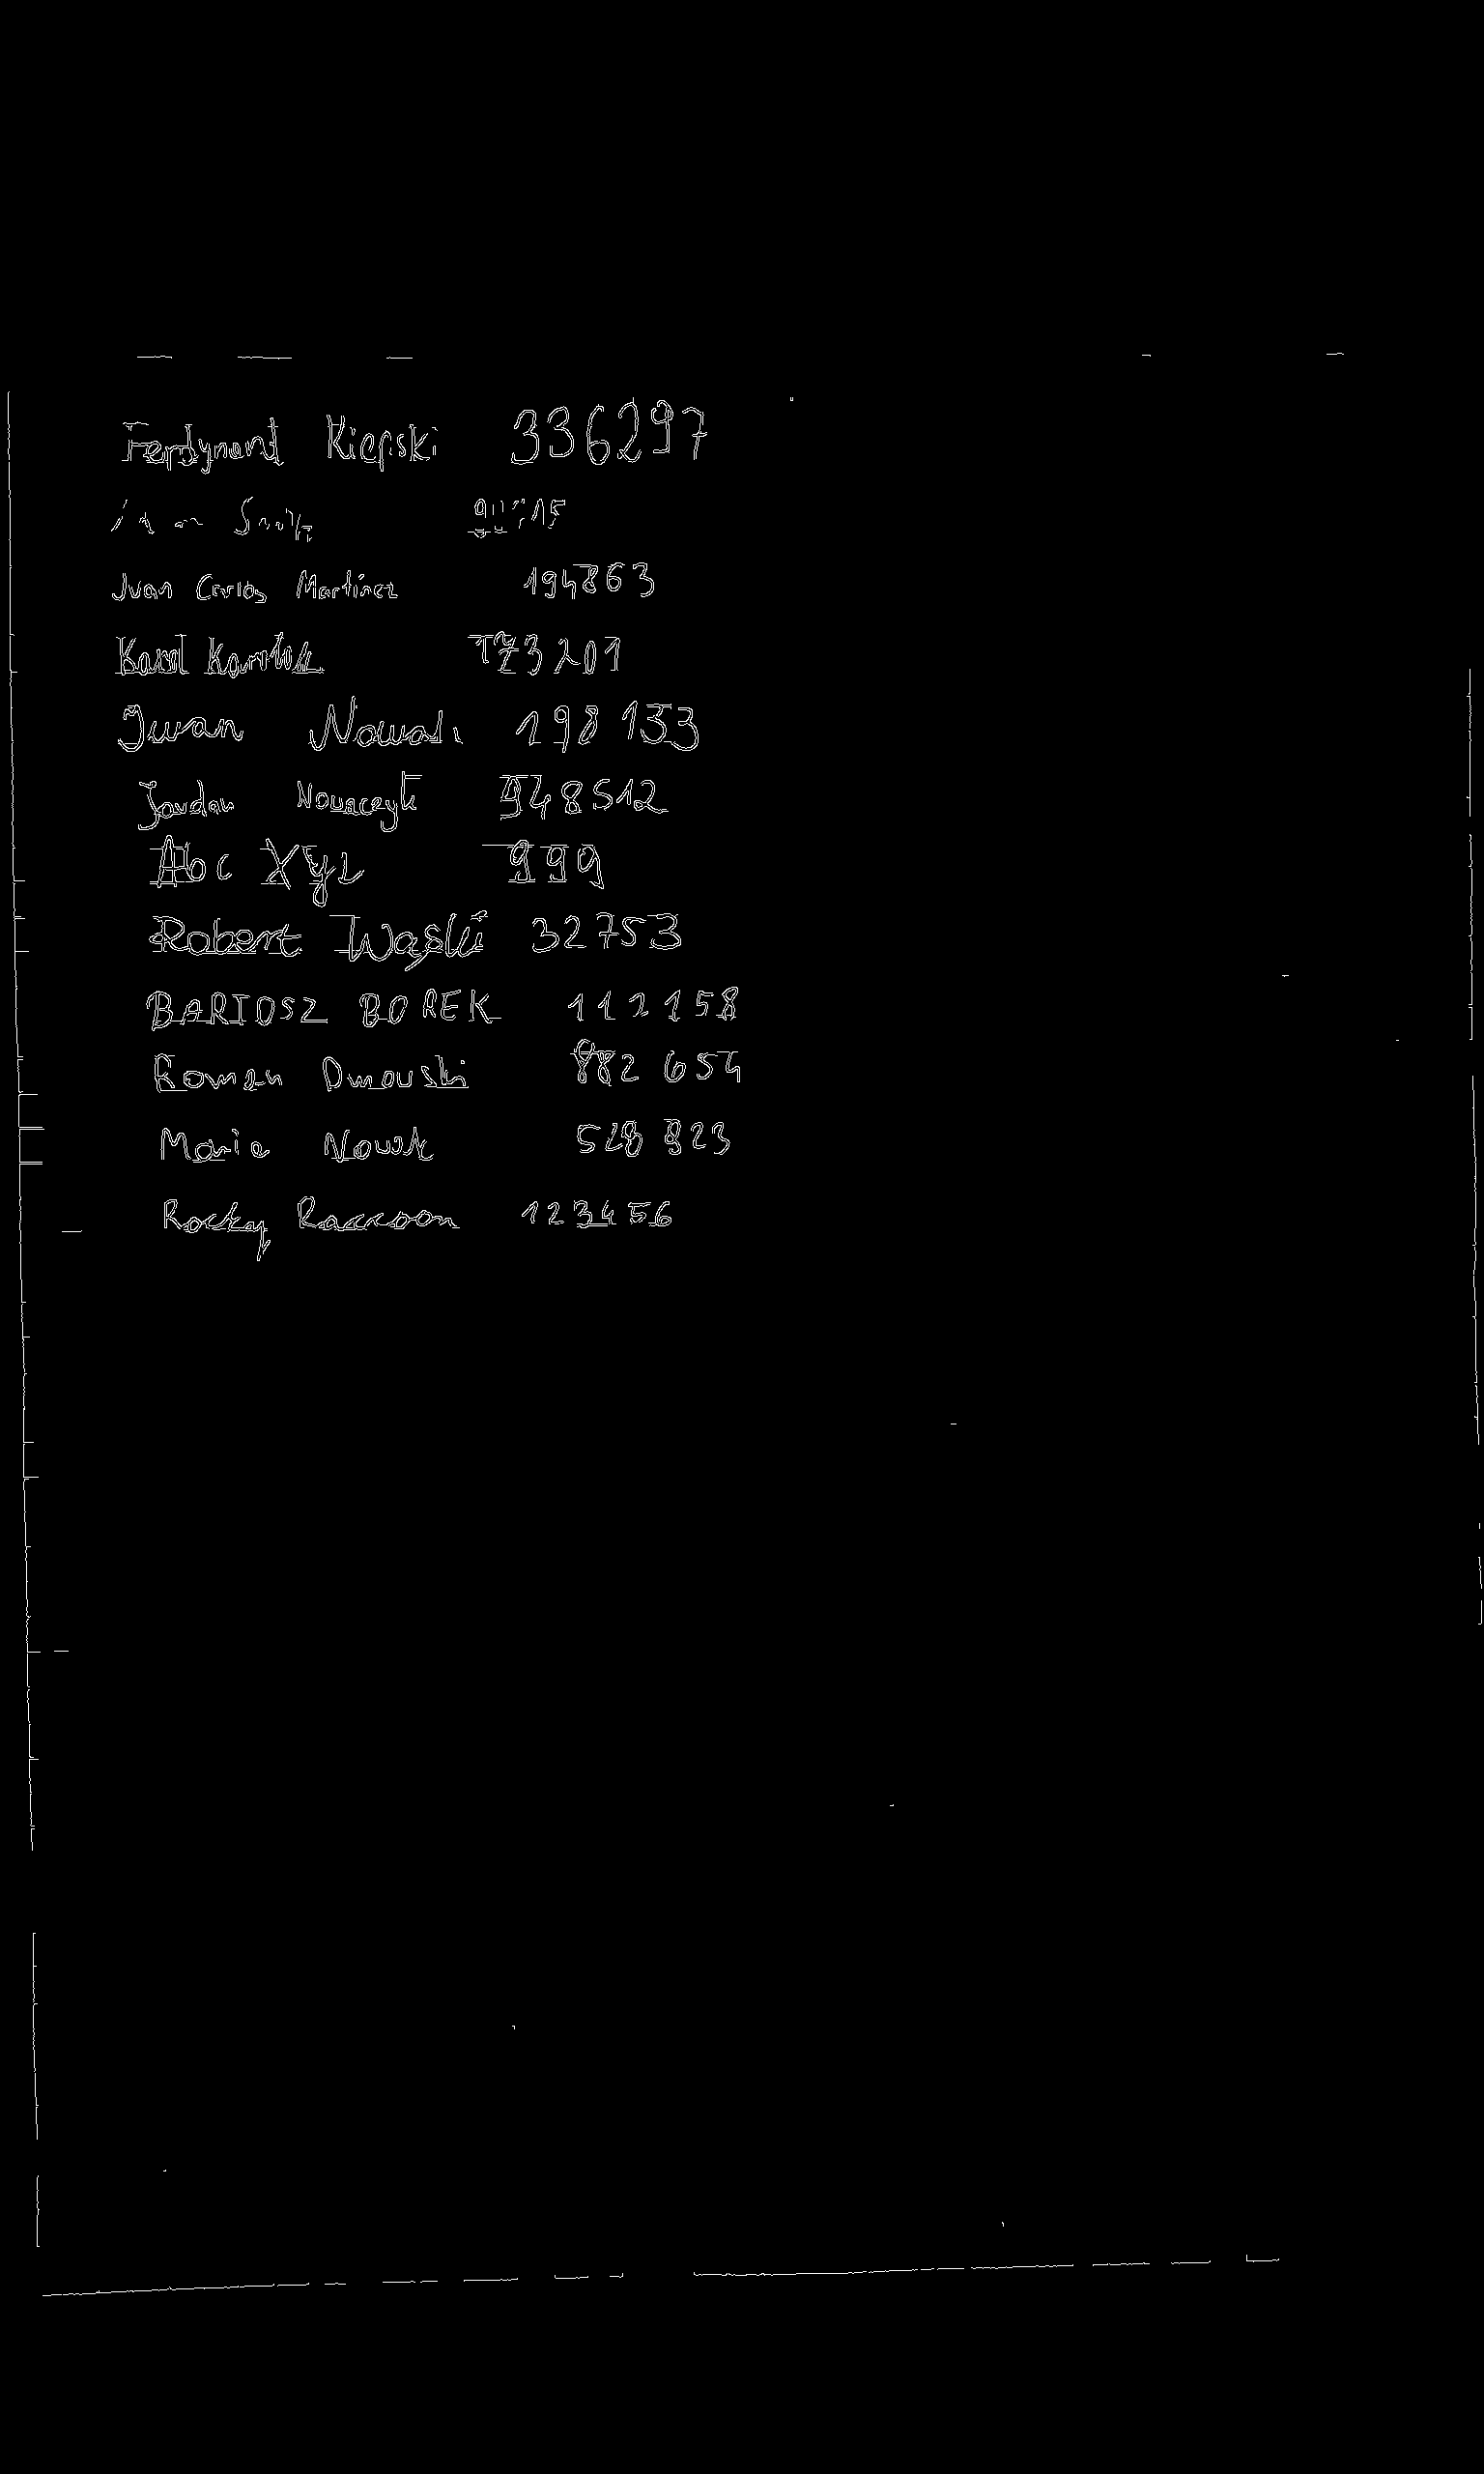 Ferdynant Kiepski 336297
Juan Carlos Martinez 194863
Karol Karolak 173201
Jwan Nowak 198133
Jordan Nowaczyk 948512
Abc Xyz 999
Robert Wąski 32753
BARTOSZ BOREK 112 158
Roman Dmowski 882 654
Maria Nowak 528 823
Rocky Raccoon 123456